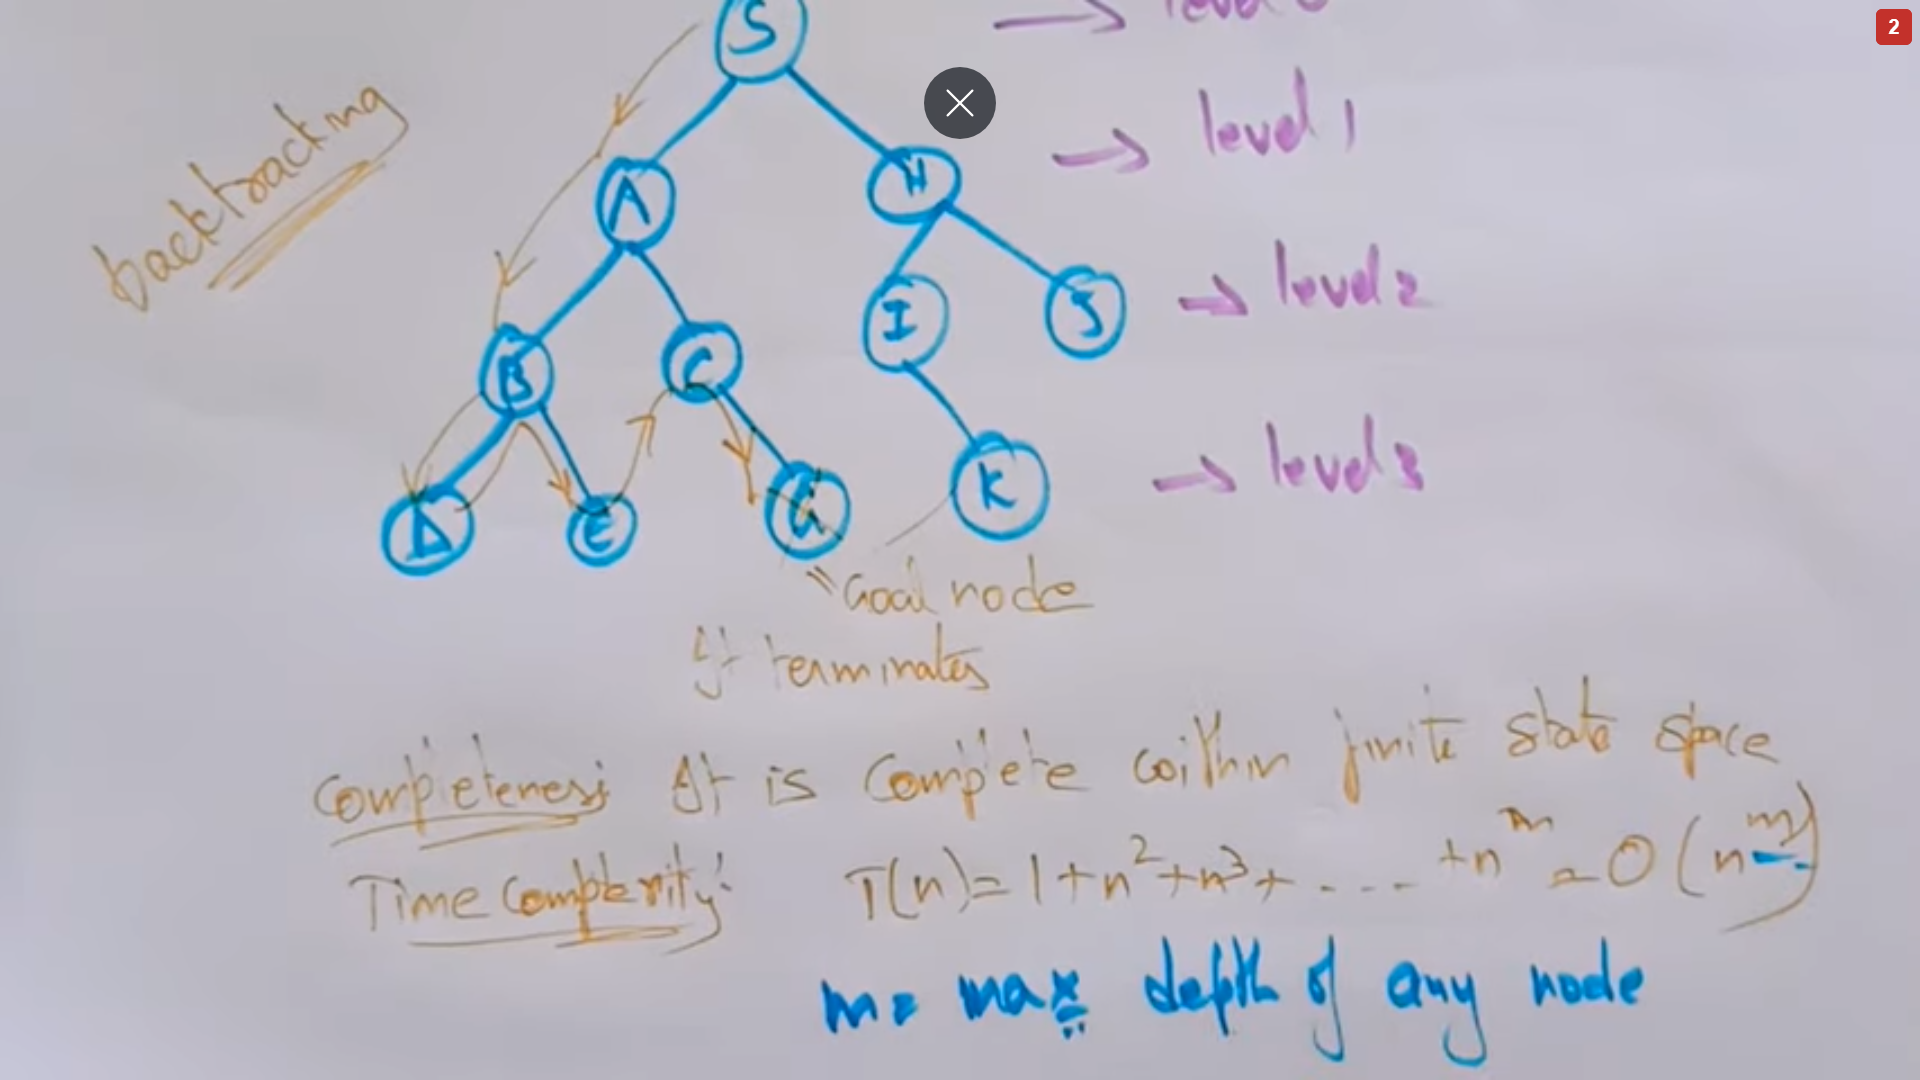 S
level 0
backtracking
A
H
level 1
B
C
I
J
level 2
D
E
G
K
level 3
"Goal node
It terminates
Completeness: It is Complete within finite state space
Time Complexity: T(n) = 1+n²+n³+ - - - - +n^m = O(n^m)
m = max depth of any node
2